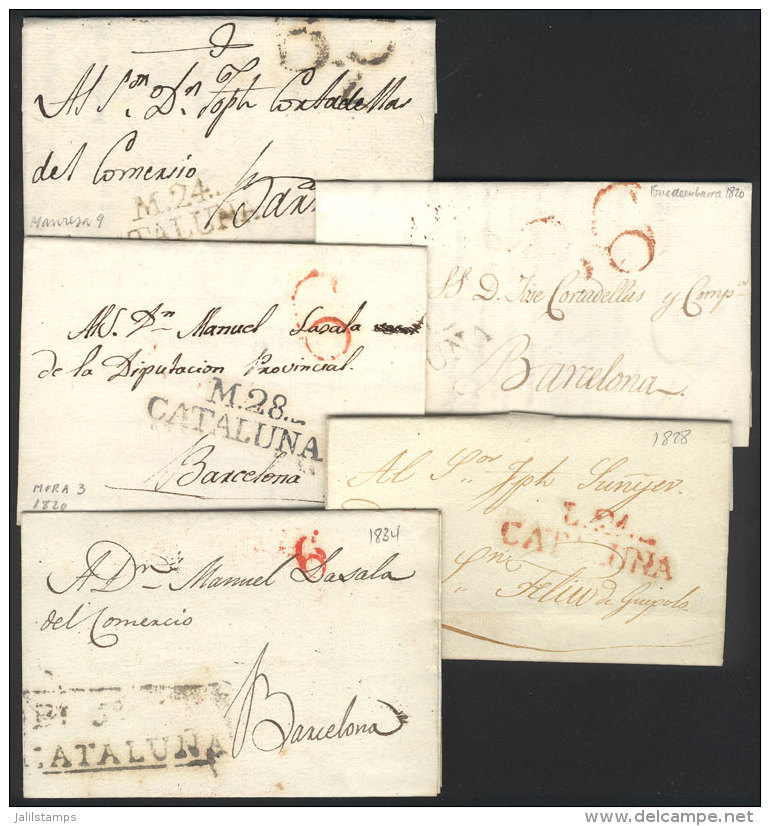 Al Sʳ. Dⁿ. Jph Cortadellas
del Comersio
M.24.
Manresa 9
1820
6
SS D. Jose Cortadellas y Compᵃ
UÑA
Barcelona
6
Al S. Dⁿ Manuel Lasala
de la Diputacion Provincial.
M.28.
CATALUÑA
Barcelona
MORA 3
1820
1828
Al Sᵒʳ Jph Sunÿer.
CATALUÑA
Feliu de Guixols
1834
6
A Dⁿ Manuel Lasala
del Comercio
CATALUÑA
Barcelona
jalilstamps
www.delcampe.net